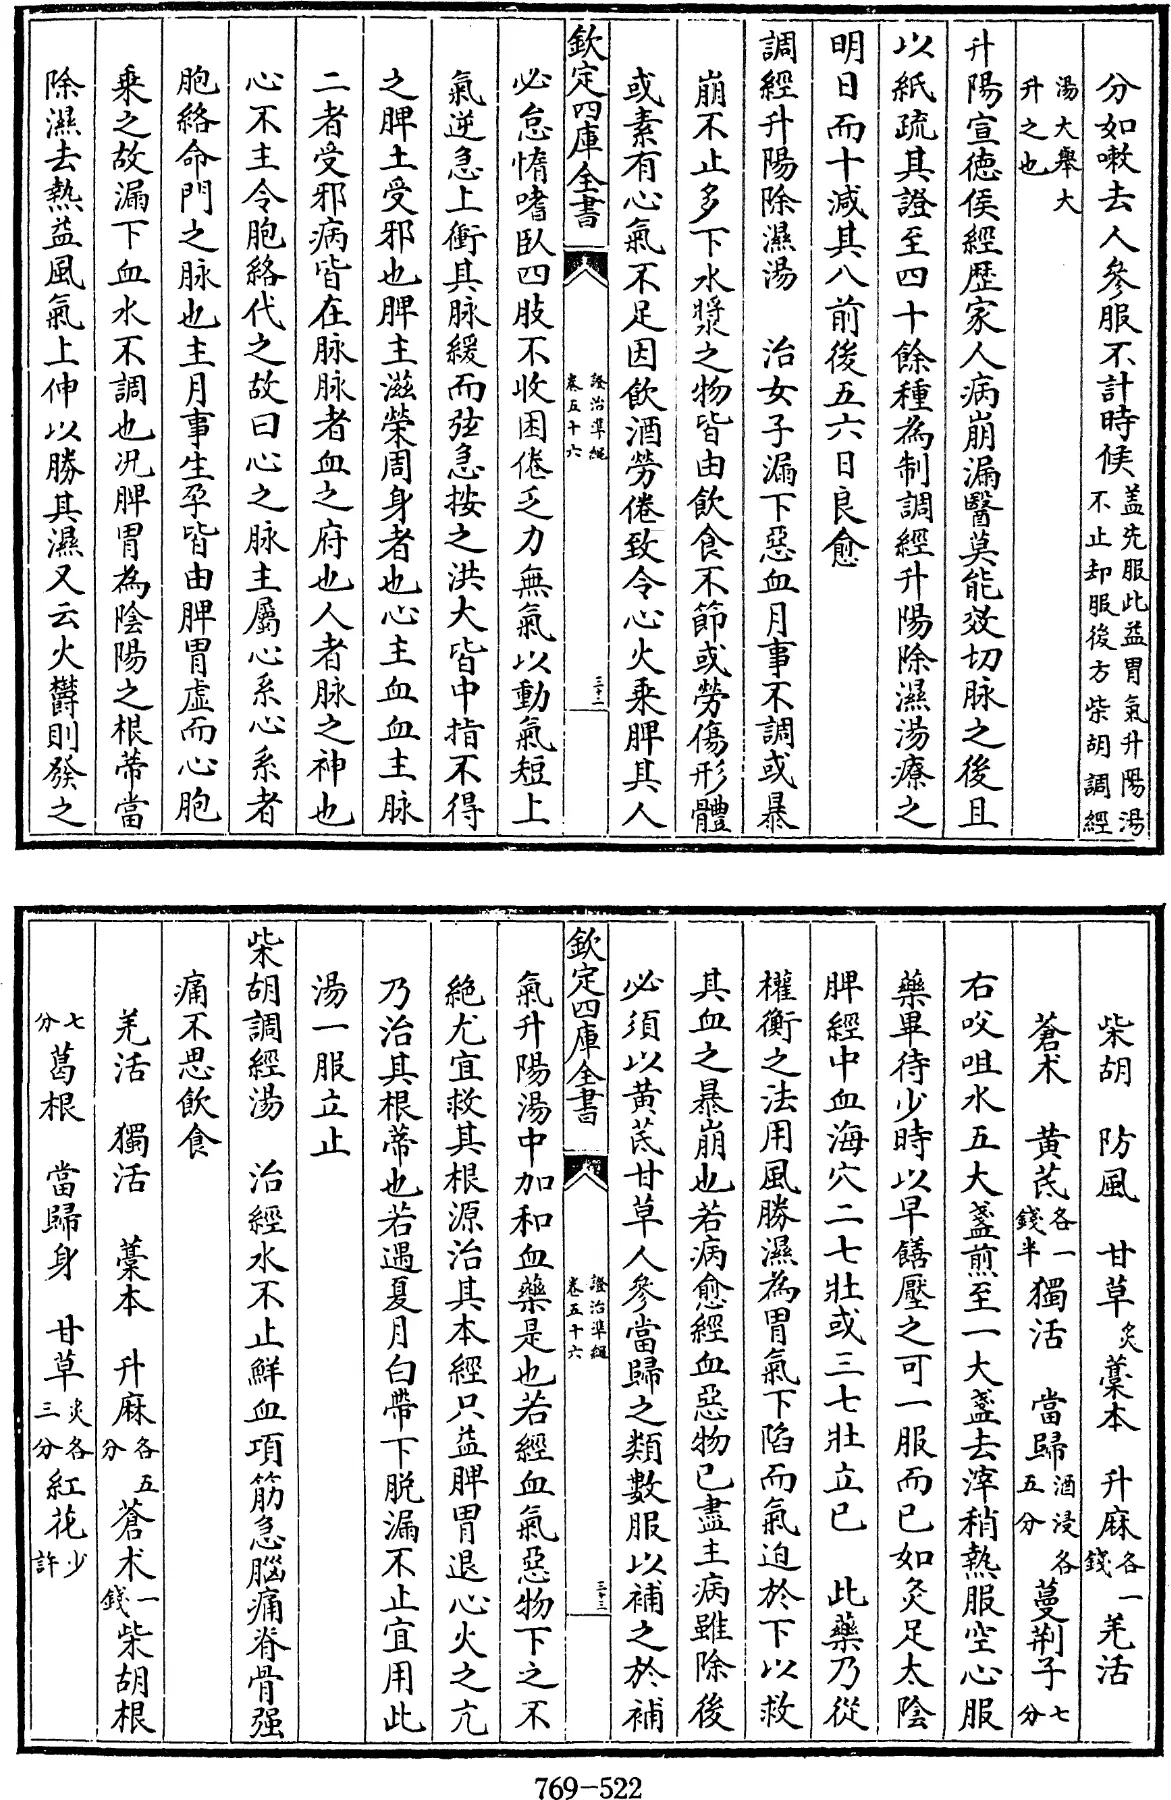 分如嗽去人參服不計時候蓋先服此益胃氣升陽湯不止却服後方柴胡調經
湯大舉大升之也
升陽宣徳侯經歴家人病崩漏醫莫能效切脉之後且
以紙疏其證至四十餘種為制調經升陽除濕湯療之
明日而十減其八前後五六日良愈
調經升陽除濕湯　治女子漏下惡血月事不調或暴
崩不止多下水漿之物皆由飲食不節或勞傷形體
或素有心氣不足因飲酒勞倦致令心火乘脾其人
欽定四庫全書　證治準繩卷五十六　三十二
必怠惰嗜臥四肢不收困倦乏力無氣以動氣短上
氣逆急上衝其脉緩而弦急按之洪大皆中指不得
之脾土受邪也脾主滋榮周身者也心主血血主脉
二者受邪病皆在脉脉者血之府也人者脉之神也
心不主令胞絡代之故曰心之脉主屬心系心系者
胞絡命門之脉也主月事生孕皆由脾胃虛而心胞
乘之故漏下血水不調也況脾胃為陰陽之根蒂當
除濕去熱益風氣上伸以勝其濕又云火鬱則發之
柴胡　防風　甘草炙藁本　升麻各一錢羌活
蒼术　黄芪各一錢半獨活　當歸酒浸各五分蔓荆子七分
右㕮咀水五大盞煎至一大盞去滓稍熱服空心服
藥畢待少時以早饍壓之可一服而已如灸足太陰
脾經中血海穴二七壯或三七壯立已　此藥乃從
權衡之法用風勝濕為胃氣下陷而氣迫於下以救
其血之暴崩也若病愈經血惡物已盡主病雖除後
必須以黄芪甘草人參當歸之類數服以補之於補
欽定四庫全書　證治準繩卷五十六　三十三
氣升陽湯中加和血藥是也若經血氣惡物下之不
絶尤宜救其根源治其本經只益脾胃退心火之亢
乃治其根蒂也若遇夏月白帶下脱漏不止宜用此
湯一服立止
柴胡調經湯　治經水不止鮮血項筋急腦痛脊骨强
痛不思飲食
羌活　獨活　藁本　升麻各五分蒼术一錢柴胡根
七分葛根　當歸身　甘草炙各三分紅花少許
769-522